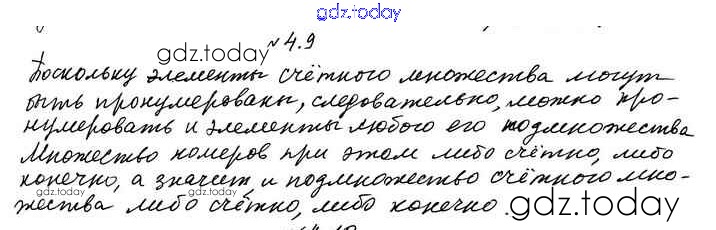 gdz.today
№ 4.9
gdz.today
Поскольку элементы счётного множества могут
быть пронумерованы, следовательно, можно про-
нумеровать и элементы любого его подмножества
Множество номеров при этом либо счётно, либо
конечно, а значит, и подмножество счётного мно-
gdz.today
gdz.today
жества либо счётно, либо конечно.
gdz.today